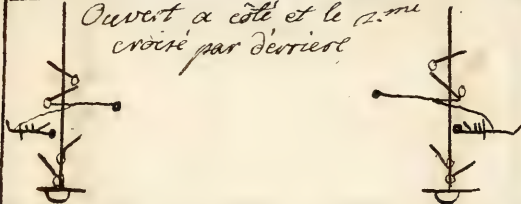 Ouvert a côté et le 2.me
croisé par derriere